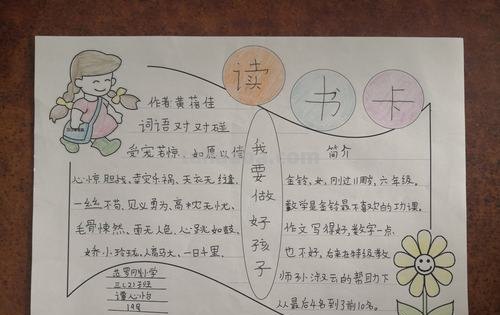 读书卡
作者:黄蓓佳
词语对对碰
受宠若惊、如愿以偿
心惊胆战、幸灾乐祸、天衣无缝、
一丝不苟、见义勇为、高枕无忧、
毛骨悚然、面无人色、心跳如鼓、
娇小玲珑、人高马大、一日千里、
我要做好孩子
简介
金铃,女,刚过11周岁,六年级。
数学是金铃最不喜欢的功课。
作文写得好,数学一点
也不好,后来在特级教
师孙淑云的帮助下
从最后4名到了前10名。
三(2)班
19号